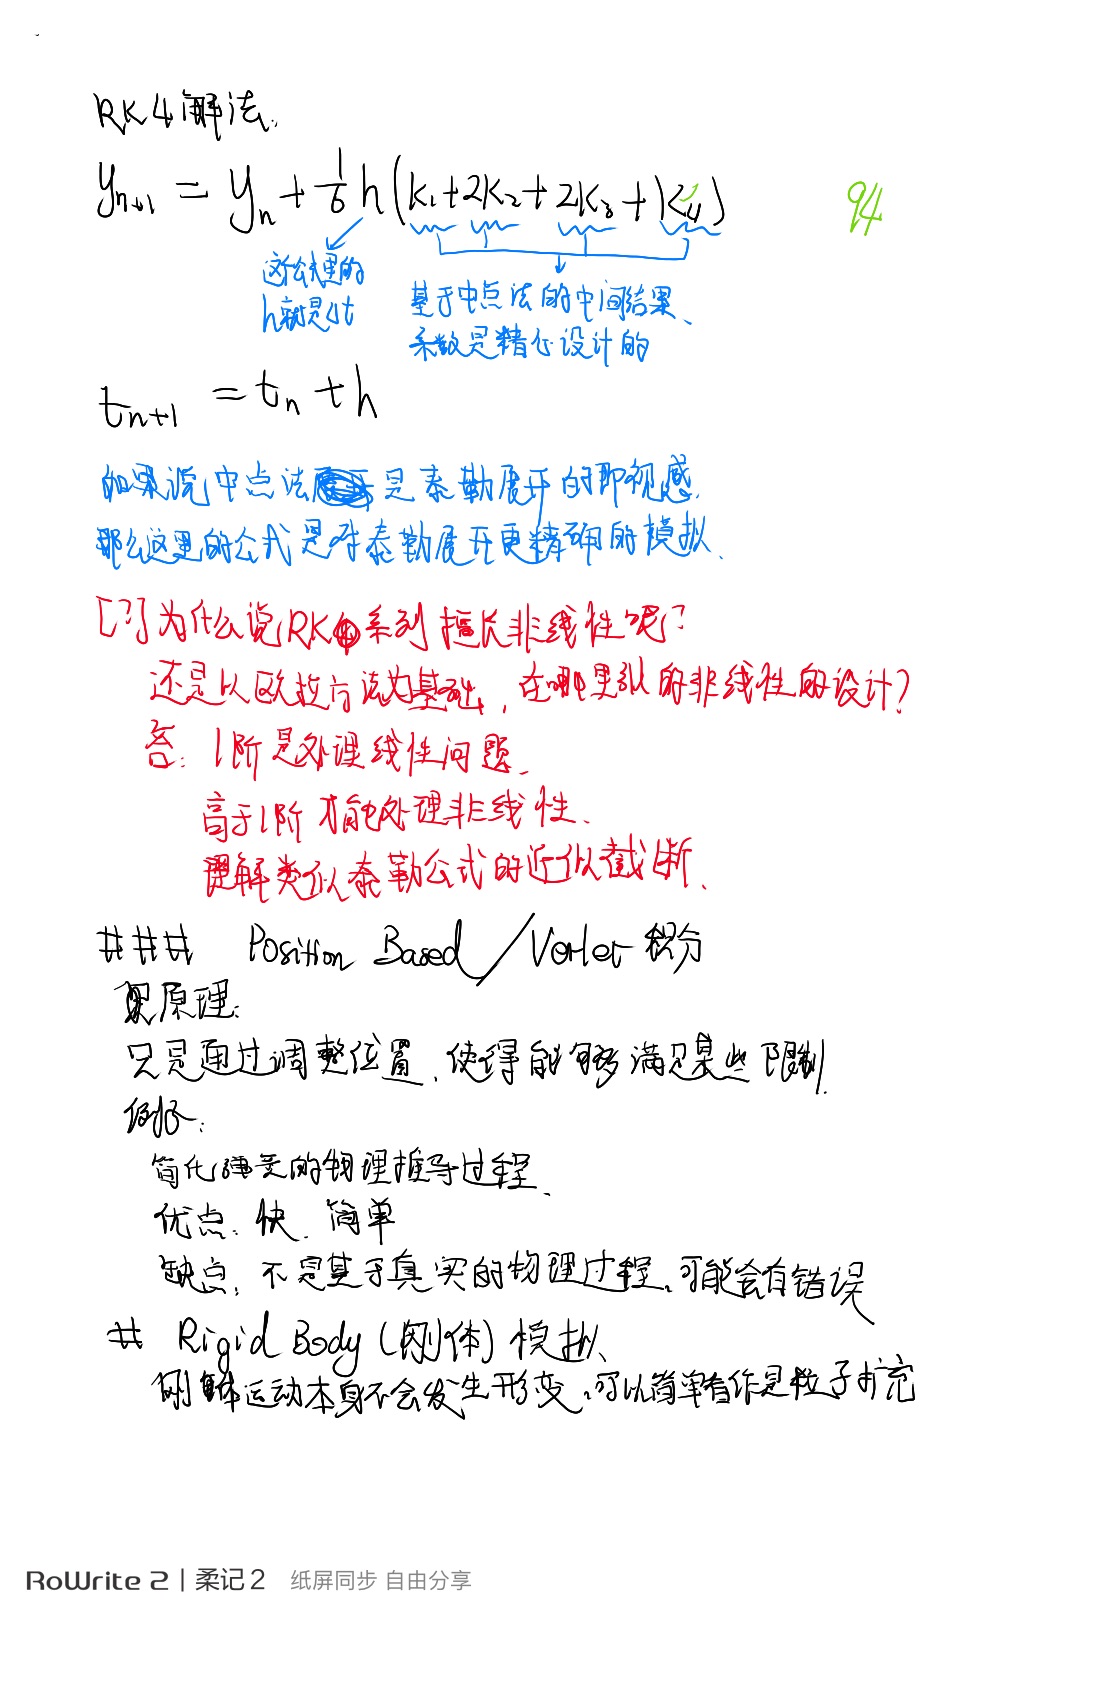 RK4解法.
y_{n+1} = y_n + 1/6 h (k_1 + 2k_2 + 2k_3 + k_4)
94
这公式里的
h就是Δt
基于中点法的中间结果、
系数是精心设计的
t_{n+1} = t_n + h
如果说中点法是泰勒展开的即视感.
那么这里的公式是对泰勒展开更精确的模拟、
[?]为什么说RK4系列擅长非线性呢?
还是以欧拉方法为基础, 在哪里的非线性的设计?
答: 1阶是处理线性问题、
高于1阶才能处理非线性、
理解类似泰勒公式的近似截断、
### Position Based / Verlet 积分
原理:
只是通过调整位置、使得能够满足某些限制.
例好:
简化的物理推导过程、
优点: 快、简单
缺点: 不是基于真实的物理过程、可能会有错误
# Rigid Body (刚体) 模拟、
刚体运动本身不会发生形变、可以简单看作是粒子扩充
RoWrite 2 | 柔记 2 纸屏同步 自由分享